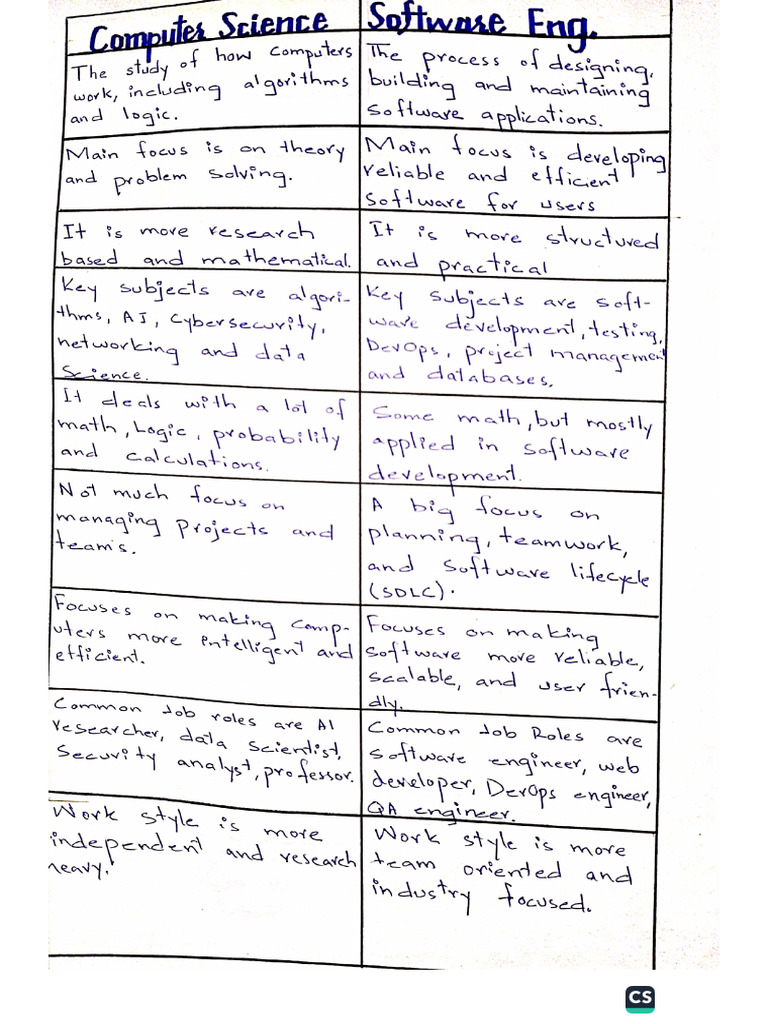 Computer Science
Software Eng.
The study of how computers
work, including algorithms
and logic.
The process of designing,
building and maintaining
software applications.
Main focus is on theory
and problem solving.
Main focus is developing
reliable and efficient
software for users
It is more research
based and mathematical.
It is more structured
and practical
Key subjects are algori-
thms, AI, Cybersecurity,
networking and data
Science.
Key subjects are soft-
ware development, testing,
DevOps, project management
and databases.
It deals with a lot of
math, Logic, probability
and calculations.
Some math, but mostly
applied in software
development.
Not much focus on
managing Projects and
team's.
A big focus on
planning, teamwork,
and software lifecycle
(SDLC).
Focuses on making Comp-
uters more intelligent and
efficient.
Focuses on making
software more reliable,
scalable, and user frien-
dly.
Common Job roles are AI
researcher, data scientist,
Security analyst, professor.
Common Job Roles are
software engineer, web
developer, DevOps engineer,
QA engineer.
Work style is more
independent and research
heavy.
Work style is more
team oriented and
industry focused.
CS